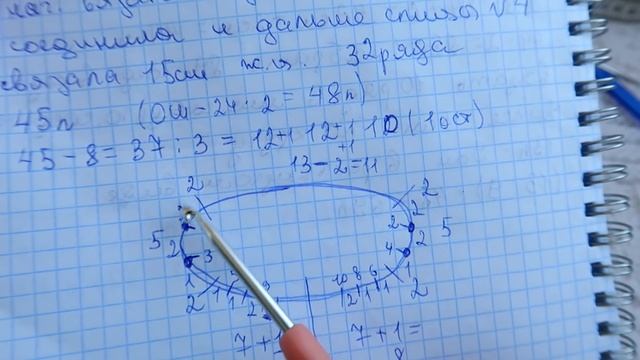 соединила и дальше спицы №4
связала 15см ж.л. 32 ряда
45п (ОШ - 24·2 = 48п)
45 - 8 = 37 : 3 = 12+1 12+1 10 (1ост)
+1
13 - 2 = 11
2 2
2 2
5 2 3 2 5
4
1 1
2 1 1 2 10 8 6 2
2 1 1
7 + 1 7 + 1 =
8